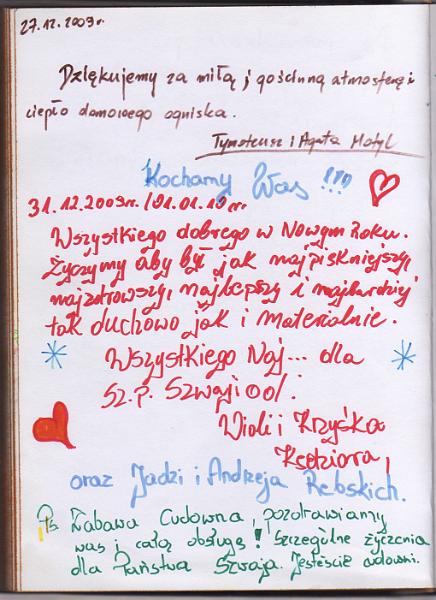 27.12.2009r.
Dziękujemy za miłą i gościnną atmosferę i
ciepło domowego ogniska.
Tymoteusz i Agata Motyl
Kochamy Was !!!
31.12.2009r. / 01.01.10 r.
Wszystkiego dobrego w Nowym Roku.
Życzymy aby był jak najpiękniejszy,
najzdrowszy, najlepszy i najbardziej
tak duchowo jak i materialnie.
Wszystkiego Naj... dla
Sz. P. Szwaji od:
Violi i Krzyśka
Kędziora,
oraz Jadzi i Andrzeja Rębskich.
Ps Zabawa Cudowna, pozdrawiamy
was i całą obsługę! Szczególne życzenia
dla Państwa Szwaja. Jesteście cudowni.